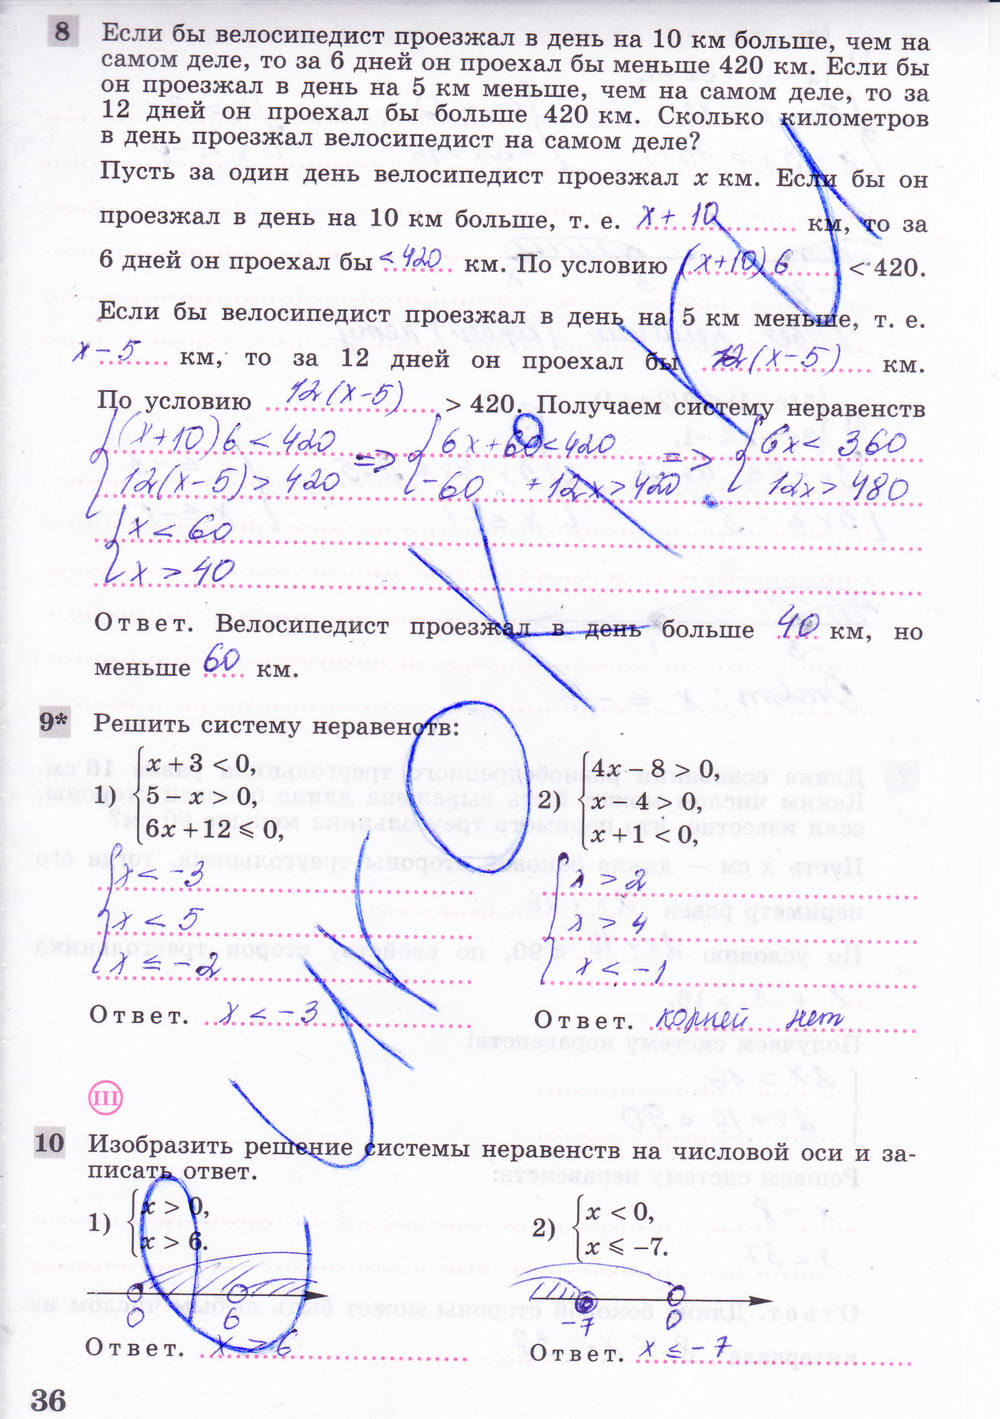 8 Если бы велосипедист проезжал в день на 10 км больше, чем на
самом деле, то за 6 дней он проехал бы меньше 420 км. Если бы
он проезжал в день на 5 км меньше, чем на самом деле, то за
12 дней он проехал бы больше 420 км. Сколько километров
в день проезжал велосипедист на самом деле?
Пусть за один день велосипедист проезжал x км. Если бы он
проезжал в день на 10 км больше, т. е. x + 10 км, то за
6 дней он проехал бы < 420 км. По условию (x+10) 6 < 420.
Если бы велосипедист проезжал в день на 5 км меньше, т. е.
x – 5 км, то за 12 дней он проехал бы 12(x – 5) км.
По условию 12(x – 5) > 420. Получаем систему неравенств
(x+10)6 < 420 => 6x + 60 < 420 => 6x < 360
12(x – 5) > 420 –60 + 12x > 420 12x > 480
x < 60
x > 40
Ответ. Велосипедист проезжал в день больше 40 км, но
меньше 60 км.
9* Решить систему неравенств:
1) x + 3 < 0,
5 – x > 0,
6x + 12 ⩽ 0,
x < –3
x < 5
x ≤ –2
Ответ. x < –3
2) 4x – 8 > 0,
x – 4 > 0,
x + 1 < 0,
x > 2
x > 4
x < –1
Ответ. корней нет
III
10 Изобразить решение системы неравенств на числовой оси и за-
писать ответ.
1) x > 0,
x > 6.
0 6
Ответ. x > 6
2) x < 0,
x ⩽ –7.
–7 0
Ответ. x ≤ –7
36